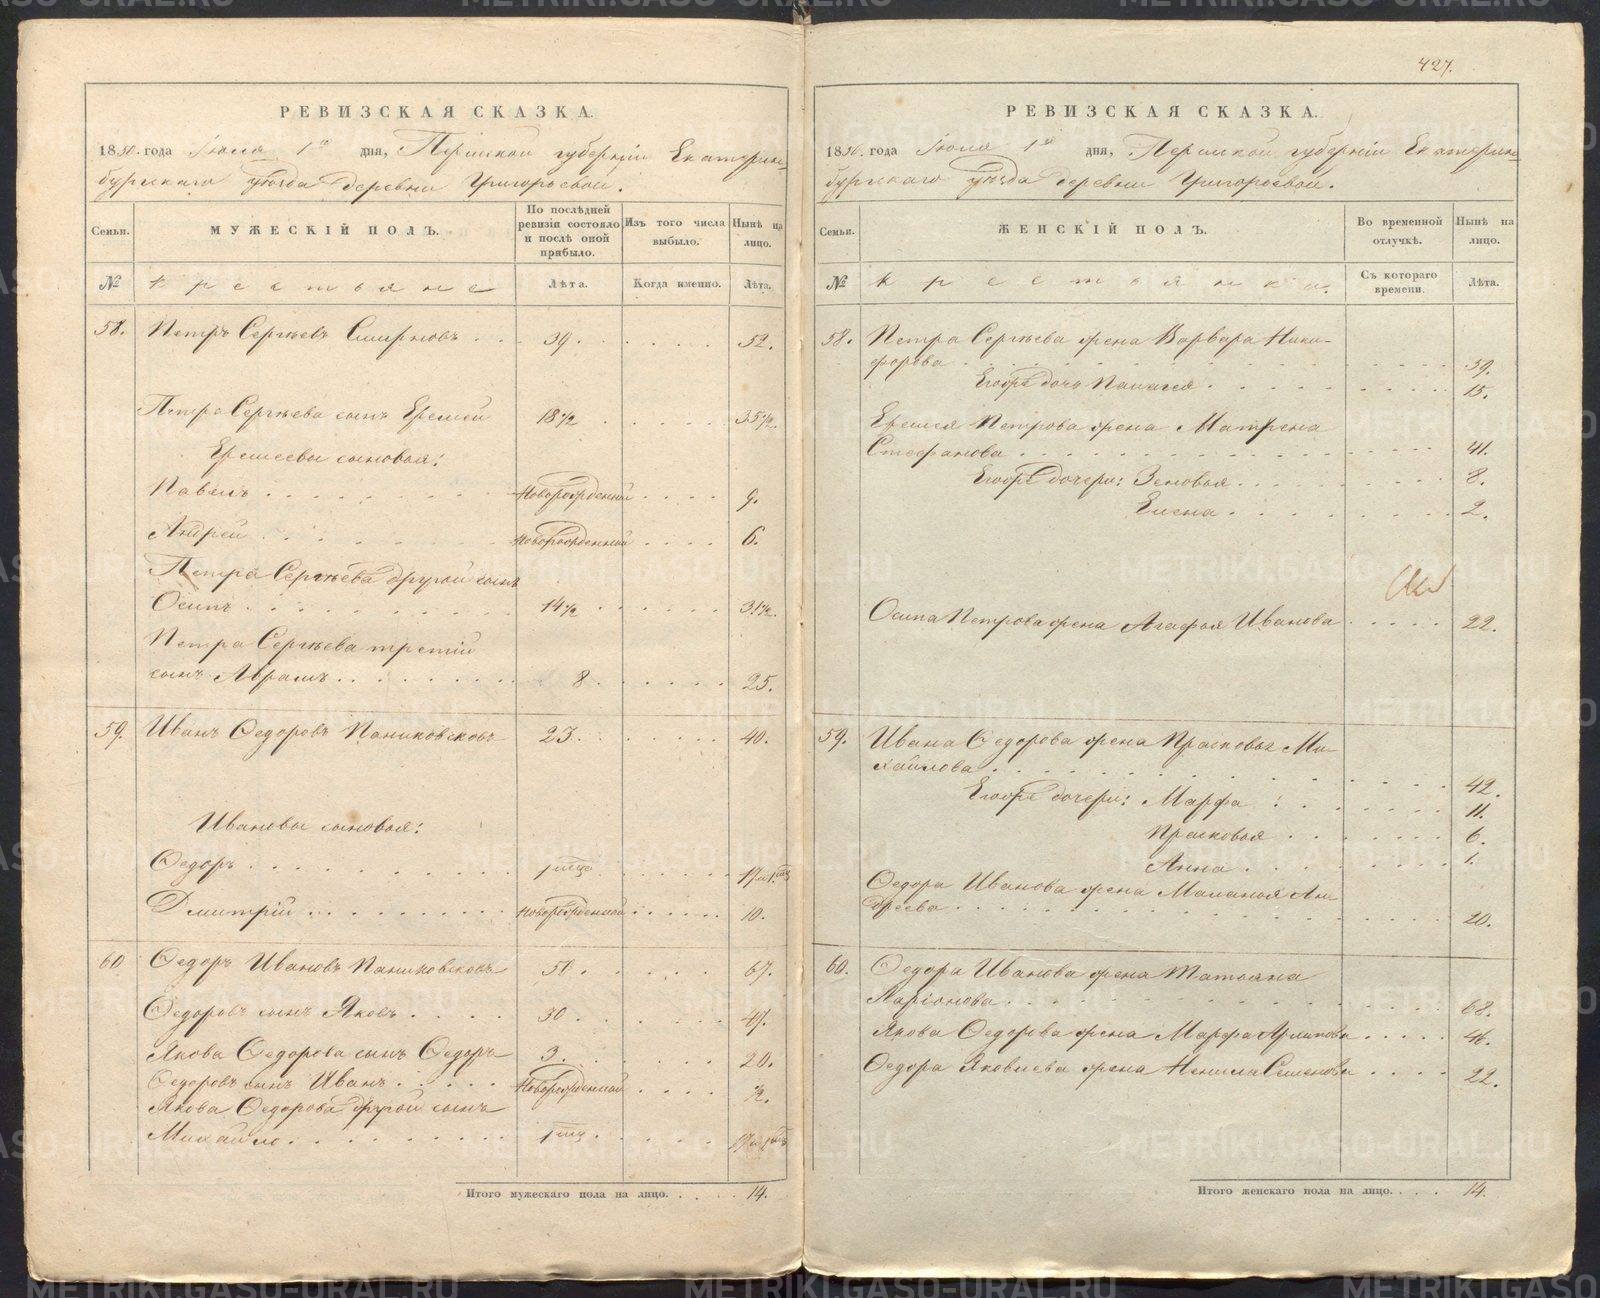 РЕВИЗСКАЯ СКАЗКА.
1850. года Іюля 1го дня, Пермской губерніи Екатерин-
бургскаго уѣзда деревни Григорьевой.
Семьи.
МУЖЕСКІЙ ПОЛЪ.
По послѣдней ревизіи состояло и послѣ оной прибыло.
Изъ того числа выбыло.
Нынѣ на лицо.
№
крестьяне
Лѣта.
Когда именно.
Лѣта.
58. Петръ Сергѣевъ Смирновъ . . . 39 . . . . . 52.
Петра Сергѣева сынъ Еремей 18 1/2 . . . . . 35 1/2.
Еремеевы сыновья:
Павелъ . . . . . Новорожденный . . . . 9.
Андрей . . . . . Новорожденный . . . . 6.
Петра Сергѣева другой сынъ
Осипъ . . . . . 14 1/2 . . . . . 31 1/2.
Петра Сергѣева третій
сынъ Абрамъ . . . . . 8 . . . . . 25.
59. Иванъ Ѳедоровъ Паниковсковъ 23 . . . . . 40.
Ивановы сыновья:
Ѳедоръ . . . . . 1 мцъ . . . . . 17 и 1 мц
Дмитрій . . . . . Новорожденный . . . . . 10.
60 Ѳедоръ Ивановъ Паниковсковъ 51 . . . . . 67.
Ѳедоровъ сынъ Яковъ . . . . 30 . . . . . 47.
Якова Ѳедорова сынъ Ѳедоръ 3 . . . . . 20.
Ѳедоровъ сынъ Иванъ . . . . . Новорожденный . . . . 1/2.
Якова Ѳедорова другой сынъ
Михайло . . . . . 1 мцъ . . . . . 17 и 1 мцъ
Итого мужескаго пола на лицо. . . . . 14.
427.
РЕВИЗСКАЯ СКАЗКА.
1850. года Іюля 1го дня, Пермской губерніи Екатерин-
бургскаго уѣзда деревни Григорьевой.
Семьи.
ЖЕНСКІЙ ПОЛЪ.
Во временной отлучкѣ.
Нынѣ на лицо.
№
крестьянки.
Съ котораго времени.
Лѣта.
58. Петра Сергѣева жена Варвара Ники-
форова . . . . . 59.
Егожъ дочь Палагея . . . . . 15.
Еремея Петрова жена Матрена
Стефанова . . . . . 41.
Егожъ дочери: Зеновья . . . . . 8.
Елена . . . . . 2.
Осипа Петрова жена Агафья Иванова . . . . . 22.
59. Ивана Ѳедорова жена Прасковья Ми-
хайлова . . . . . 42.
Егожъ дочери: Марфа . . . . . 11.
Прасковья . . . . . 6.
Анна . . . . . 1.
Ѳедора Иванова жена Маланья Ан-
дреева . . . . . 20.
60. Ѳедора Иванова жена Татьяна
Ларіонова . . . . . 68.
Якова Ѳедорова жена Марфа Архипова . . . . . 46.
Ѳедора Яковлева жена Ненила Семенова . . . . 22.
Итого женскаго пола на лицо. . . . . 14.
METRIKI.GASO-URAL.RU